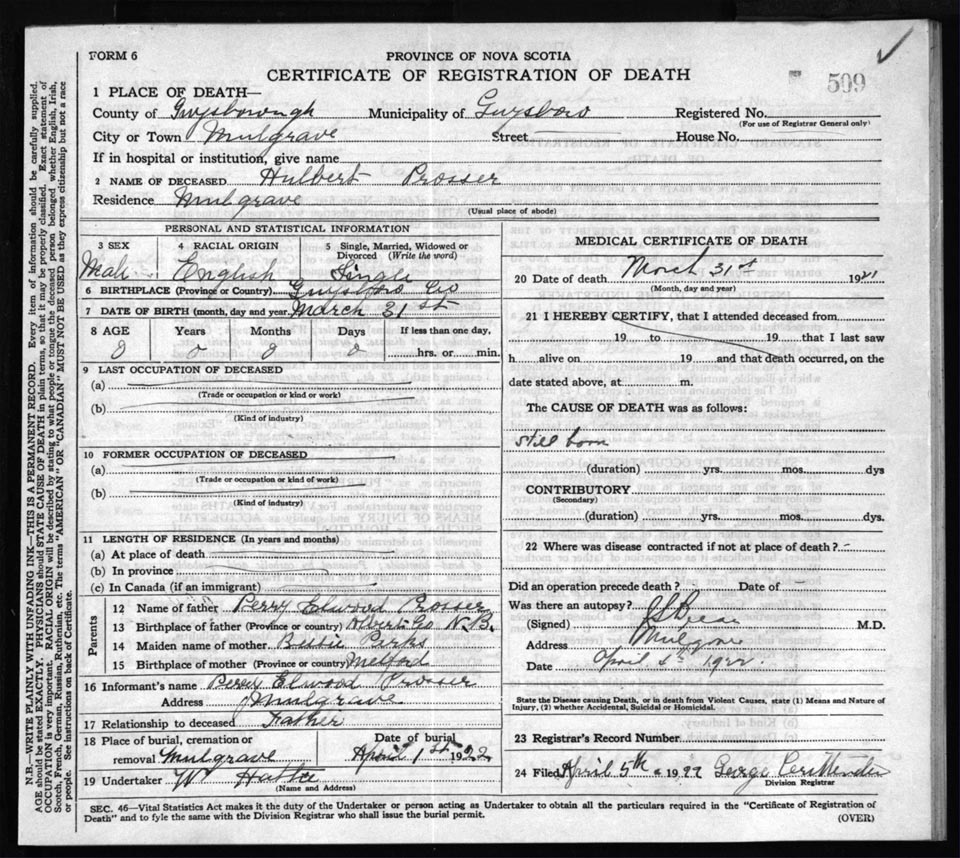 FORM 6
PROVINCE OF NOVA SCOTIA
CERTIFICATE OF REGISTRATION OF DEATH
509
1 PLACE OF DEATH—
County of Guysborough Municipality of Guysboro Registered No.
(For use of Registrar General only)
City or Town Mulgrave Street House No.
If in hospital or institution, give name
2 NAME OF DECEASED Hulbert Prosser
Residence Mulgrave
(Usual place of abode)
PERSONAL AND STATISTICAL INFORMATION
3 SEX 4 RACIAL ORIGIN 5 Single, Married, Widowed or Divorced (Write the word)
Male English Single
6 BIRTHPLACE (Province or Country) Guysboro Co
7 DATE OF BIRTH (month, day and year) March 31st
8 AGE Years Months Days If less than one day,
0 0 0 0 hrs. or min.
9 LAST OCCUPATION OF DECEASED
(a)
(Trade or occupation or kind or work)
(b)
(Kind of industry)
10 FORMER OCCUPATION OF DECEASED
(a)
(Trade or occupation or kind of work)
(b)
(Kind of industry)
11 LENGTH OF RESIDENCE (In years and months)
(a) At place of death
(b) In province
(c) In Canada (if an immigrant)
Parents
12 Name of father Perry Elwood Prosser
13 Birthplace of father (Province or country) Albert Co N.B.
14 Maiden name of mother Parks
15 Birthplace of mother (Province or country) Melford
16 Informant's name Perry Elwood Prosser
Address Mulgrave
17 Relationship to deceased Father
18 Place of burial, cremation or removal Mulgrave Date of burial April 1st 1922
19 Undertaker W
(Name and Address)
MEDICAL CERTIFICATE OF DEATH
20 Date of death March 31st 192
(Month, day and year)
21 I HEREBY CERTIFY, that I attended deceased from
19 to 19 that I last saw
h alive on 19 and that death occurred, on the
date stated above, at m.
The CAUSE OF DEATH was as follows:
still born
(duration) yrs. mos. dys
CONTRIBUTORY
(Secondary)
(duration) yrs. mos. dys.
22 Where was disease contracted if not at place of death?
Did an operation precede death? Date of
Was there an autopsy?
(Signed) M.D.
Address Mulgrave
Date April 1922.
State the Disease causing Death, or in death from Violent Causes, state (1) Means and Nature of Injury, (2) whether Accidental, Suicidal or Homicidal.
23 Registrar's Record Number
24 Filed April 5th 1922 George
Division Registrar
SEC. 46—Vital Statistics Act makes it the duty of the Undertaker or person acting as Undertaker to obtain all the particulars required in the "Certificate of Registration of
Death" and to fyle the same with the Division Registrar who shall issue the burial permit.
(OVER)
N.B.—WRITE PLAINLY WITH UNFADING INK—THIS IS A PERMANENT RECORD. Every item of information should be carefully supplied.
AGE should be stated EXACTLY. PHYSICIANS should STATE CAUSE OF DEATH in plain terms, so that it may be properly classified. Exact statement of
OCCUPATION is very important. RACIAL ORIGIN will be described by stating to what people or tongue the deceased person belonged whether English, Irish,
Scotch, French, German, Russian, Ruthenian, etc. The terms "AMERICAN" or "CANADIAN" MUST NOT BE USED as they express citizenship but not a race
or people. See instructions on back of Certificate.